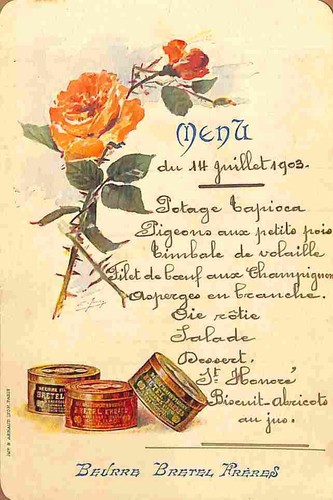 Menu
du 14 Juillet 1903.
Potage Tapioca
Pigeons aux petits pois
Timbale de volaille
Filet de bœuf aux Champignon
Asperges en branche.
Oie rôtie
Salade
Dessert.
St Honoré
Biscuit-Abricots
au jus.
BRETEL
BRETEL FRÈRES
Beurre Bretel Frères